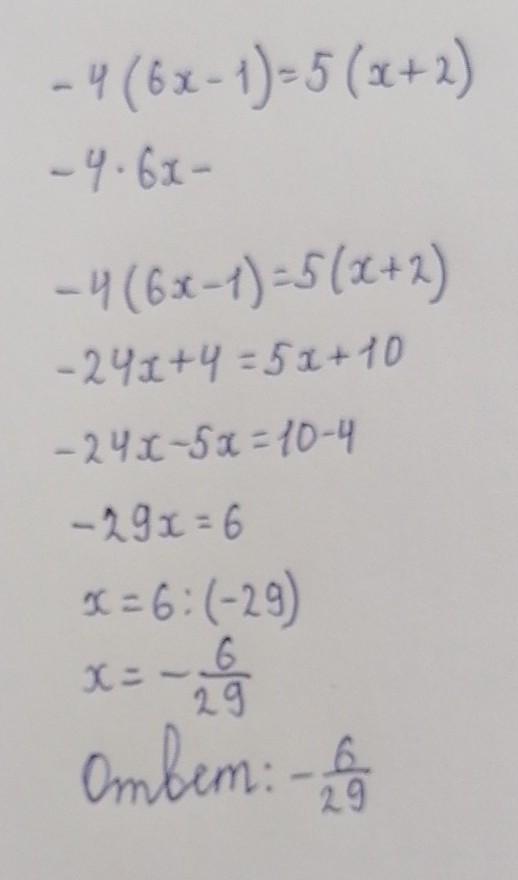 -4(6x-1)=5(x+2)
-4·6x-
-4(6x-1)=5(x+2)
-24x+4=5x+10
-24x-5x=10-4
-29x=6
x=6:(-29)
x=-6/29
Ответ: -6/29